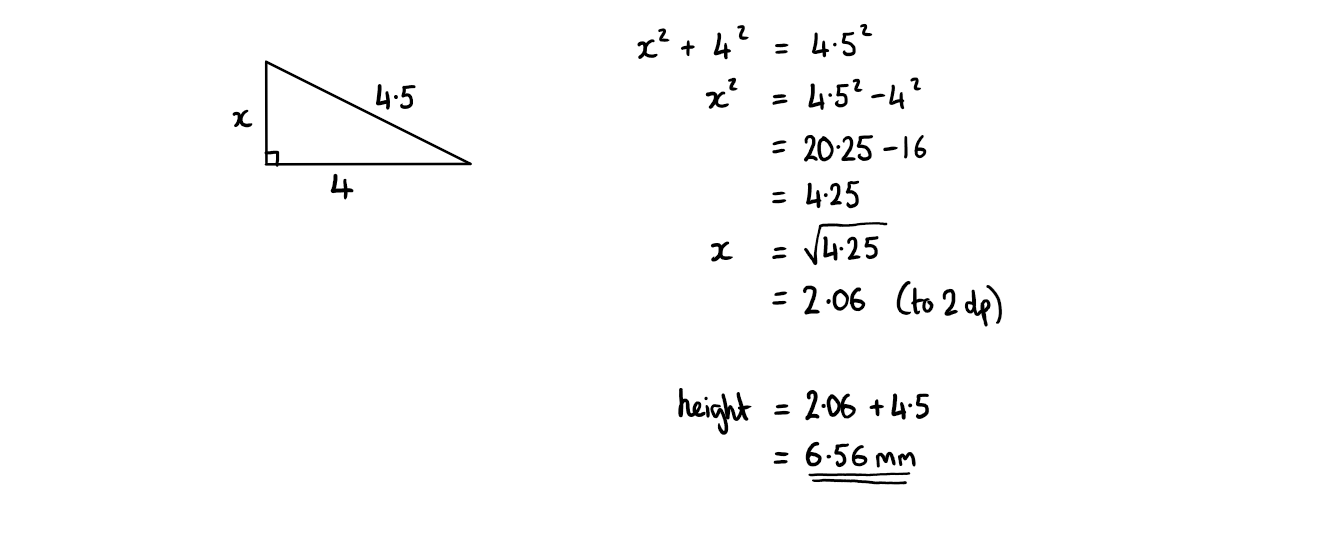 x
4·5
4
x² + 4² = 4·5²
x² = 4·5² - 4²
= 20·25 - 16
= 4·25
x = √4·25
= 2·06 (to 2 dp)
height = 2·06 + 4·5
= 6·56 mm